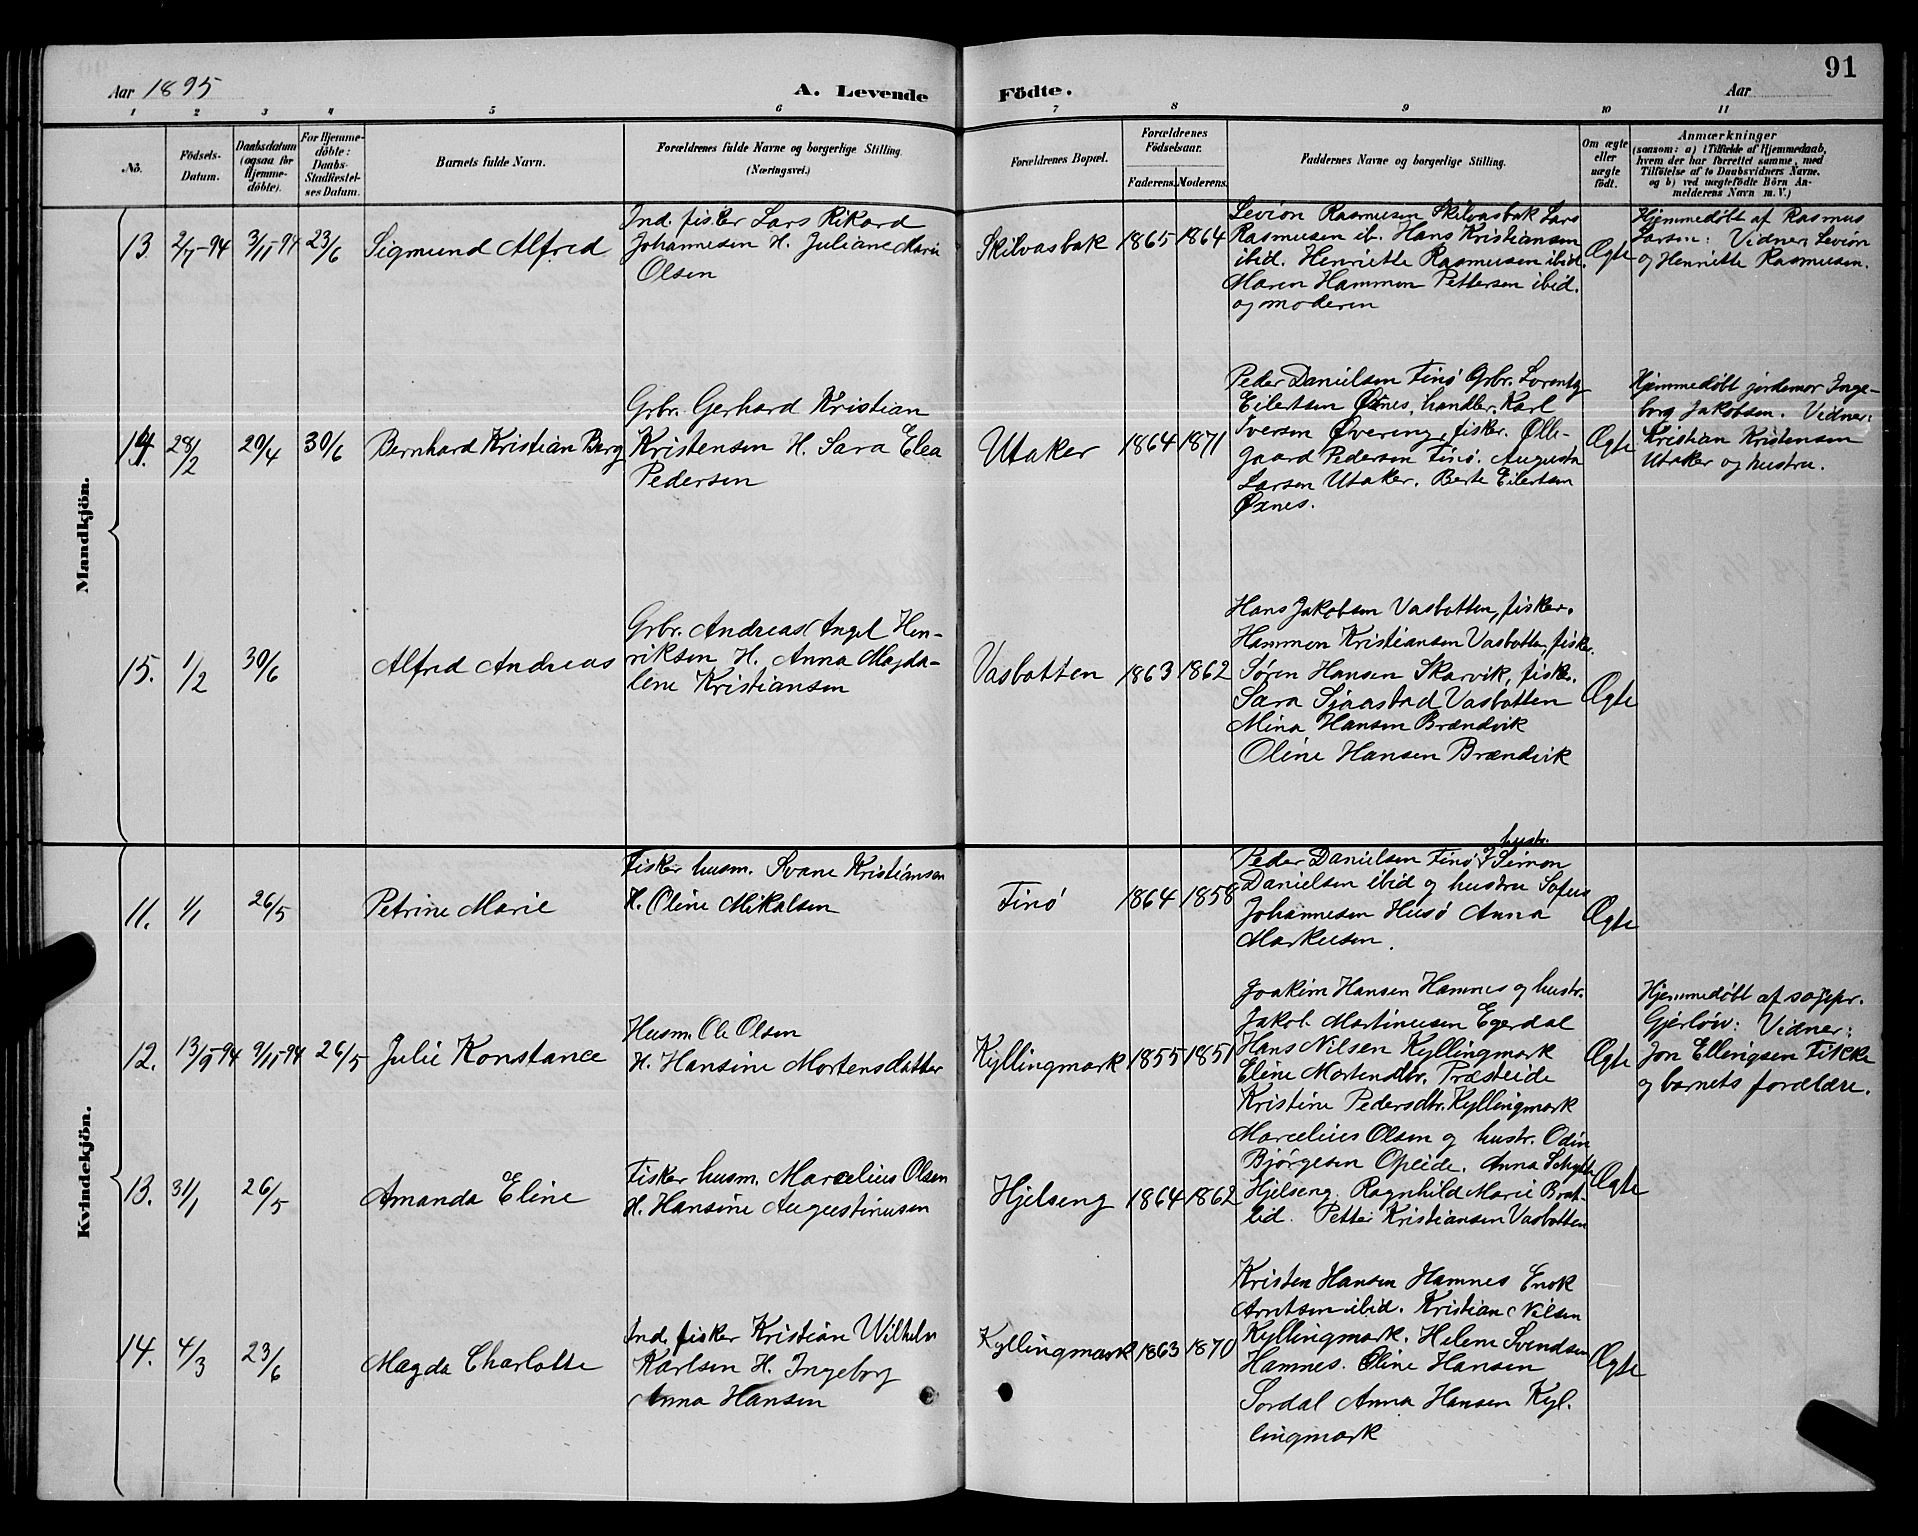 91
Aar 1895
A. Levende
Födte.
Aar
1 2 3 4 5 6 7 8 9 10 11
No.
Födsels-
Datum.
Daabsdatum
(ogsaa for
Hjemme-
döbte).
For Hjemme-
döbte:
Daabs-
Stadfæstel-
ses Datum.
Barnets fulde Navn.
Forældrenes fulde Navne og borgerlige Stilling.
(Næringsvei.)
Forældrenes Bopæl.
Forældrenes
Födselsaar.
Faderens. Moderens.
Faddernes Navne og borgerlige Stilling.
Om ægte
eller
uægte
födt.
Anmærkninger
(saasom: a) i Tilfælde af Hjemmedaab,
hvem der har forrettet samme, med
Tilföielse af to Daabsvidners Navne.
og b) ved uægtefödte Börn An-
melderens Navn m. V.)
Mandkjön.
13. 2/7-94 3/11 94 23/6
Sigmund Alfred
Ind. fisker Lars Rikard
Johannesen H. Juliane Marie
Olsen
Skilvasbak 1865 1864
Levion Rasmusen Skilvasbak Lars
Rasmusen ib. Hans Kristiansen
ibid. Henriette Rasmusen ibid.
Maren Hammon Pettersen ibid.
og moderen
Ægte
Hjemmedøbt af Rasmus
Larsen: Vidner Levion
og Henriette Rasmusen.
14. 28/2 29/4 30/6
Bernhard Kristian Berg
Grbr. Gerhard Kristian
Kristensen H. Sara Elea
Pedersen
Utaker 1864 1871
Peder Danielsen Finö Grbr. Lorentz
Eilertsen Øxnes, handler. Karl
Iversen Øvereng, fisker. Olle-
gaard Pedersen Finö. Augusta
Larsen Utaker. Berte Eilertsen
Øxnes.
Ægte
Hjemmedøbt jordemor Inge-
borg Jakobsen. Vidner:
Kristian Kristensen
Utaker og hustru.
15. 1/2 30/6
Alfred Andreas
Grbr. Andreas Angel Hen-
riksen H. Anna Magda-
lene Kristiansen
Vasbotten 1863 1862
Hans Jakobsen Vasbotten, fisker.
Hammon Kristiansen Vasbotten, fisker.
Søren Hansen Skarvik, fisker.
Sara Sjaastad Vasbotten
Mina Hansen Brændvik
Oline Hansen Brændvik
Ægte
Kvindekjön.
11. 1/1 26/5
Petrine Marie
Fisker husm. Svane Kristiansen
H. Oline Mikalsen
Finö 1864 1858
hustr.
Peder Danielsen Finö & Simon
Danielsen ibid og hustru Sofus
Johannesen Husö Anna
Markusen.
Ægte
12. 13/9 94 9/11 94 26/5
Julie Konstance
Husm. Ole Olsen
H. Hansine Mortensdatter
Kyllingmark 1855 1851
Joakim Hansen Hamnes og hustr.
Jakob Martinusen Egerdal
Hans Nilsen Kyllingmark
Eline Mortensdtr. Præsteide
Kristine Pedersdtr. Kyllingmark
Ægte
Hjemmedøbt af sogepr.
Gjerlöw: Vidner:
Jon Ellingsen Fikke
og barnets forældre.
13. 31/1 26/5
Amanda Eline
Fisker husm. Marcelius Olsen
H. Hansine Augustinusen
Hjelseng 1864 1862
Marcelius Olsen og hustr. Odin
Bjørgesen Opeide. Anna
Hjelseng. Ragnhild Marie Brat-
lid. Petter Kristiansen Vasbotten
Ægte
14. 4/3 23/6
Magda Charlotte
Ind. fisker Kristian Wilhelm
Karlsen H. Ingeborg
Anna Hansen
Kyllingmark 1863 1870
Kristen Hansen Hamnes Enok
Arntsen ibid. Kristian Nilsen
Kyllingmark. Helene Svendsen
Hamnes. Oline Hansen
Sørdal Anna Hansen Kyl-
lingmark
Ægte